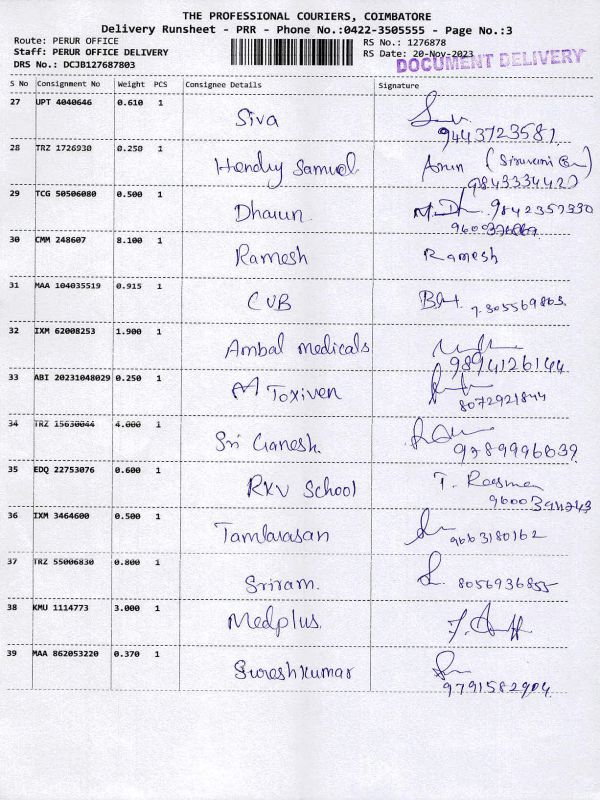 THE PROFESSIONAL COURIERS, COIMBATORE
Delivery Runsheet - PRR - Phone No.:0422-3505555 - Page No.:3
Route: PERUR OFFICE RS No.: 1276878
Staff: PERUR OFFICE DELIVERY RS Date: 20-Nov-2023
DOCUMENT DELIVERY
DRS No.: DCJB127687803
S No Consignment No Weight PCS Consignee Details Signature
27 UPT 4040646 0.610 1 Siva
9443723581
28 TRZ 1726930 0.250 1 Hendry Samuel Arun
29 TCG 50506080 0.500 1 Dharun
30 CMM 248607 8.100 1 Ramesh Ramesh
31 MAA 104035519 0.915 1 CUB
32 IXM 62008253 1.900 1 Ambal medicals
9894126144
33 ABI 20231048029 0.250 1 AA Toxiven
8072921844
34 TRZ 15630044 4.000 1 Sri Ganesh.
35 EDQ 22753076 0.600 1 RKV School
36 IXM 3464600 0.500 1 Tamilarasan 9663180162
37 TRZ 55006830 0.800 1 Sriram. 8056936855
38 KMU 1114773 3.000 1 Medplus
39 MAA 862053220 0.370 1 Sureshkumar
9791582904